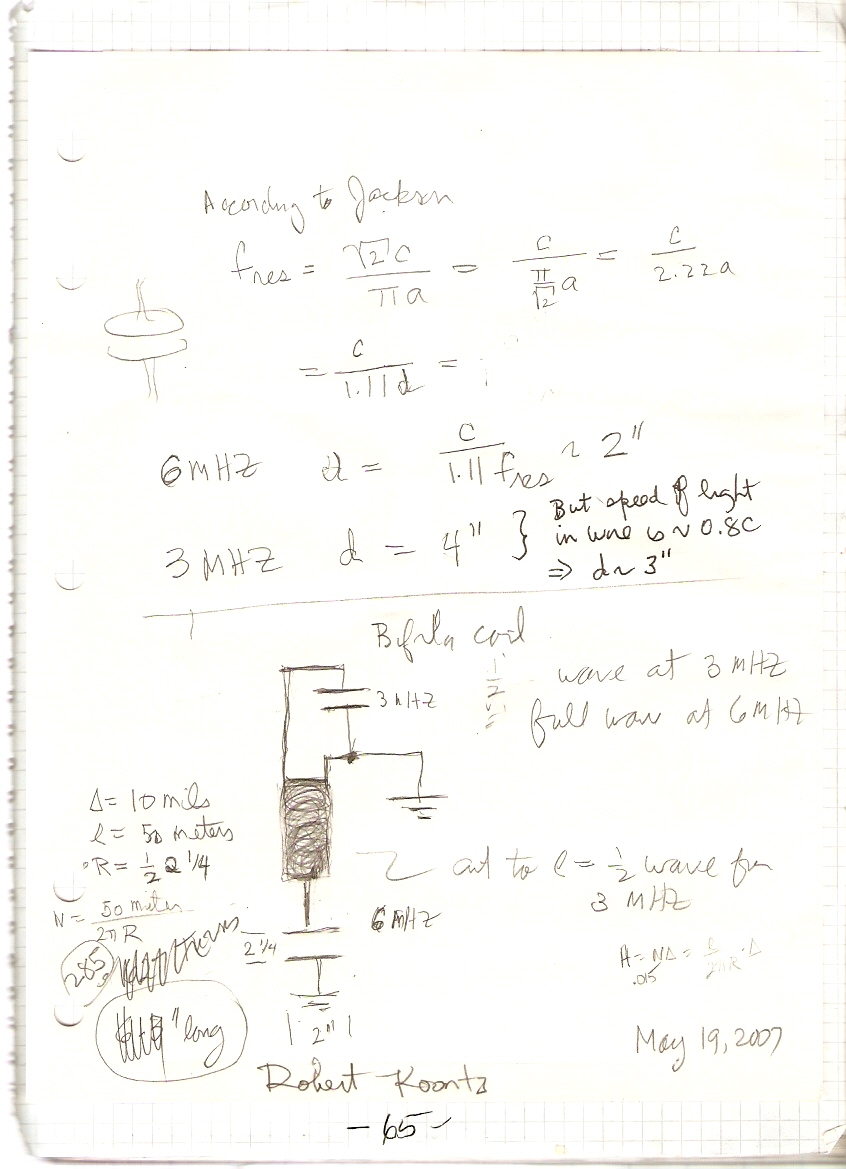 According to Jackson
fres = √2 c / π a = c / (π/√2) a = c / 2.22a
= c / 1.11 d =
6 MHZ d = c / 1.11 fres ~ 2"
3 MHZ d = 4" } But speed of light
in wire is ~ 0.8C
⇒ d ~ 3"
coil
1/2 wave at 3 MHZ
full wave at 6 MHZ
3 MHZ
Δ = 10 mils
l = 50 meters
R = 1/2 2 1/4
N = 50 meter / 2π R
285
cut to l = 1/2 wave for
3 MHZ
6 MHZ
2 1/4
H = NΔ = l / 2πR · Δ
.015
" long
| 2" |
May 19, 2007
Robert Koontz
- 65 -